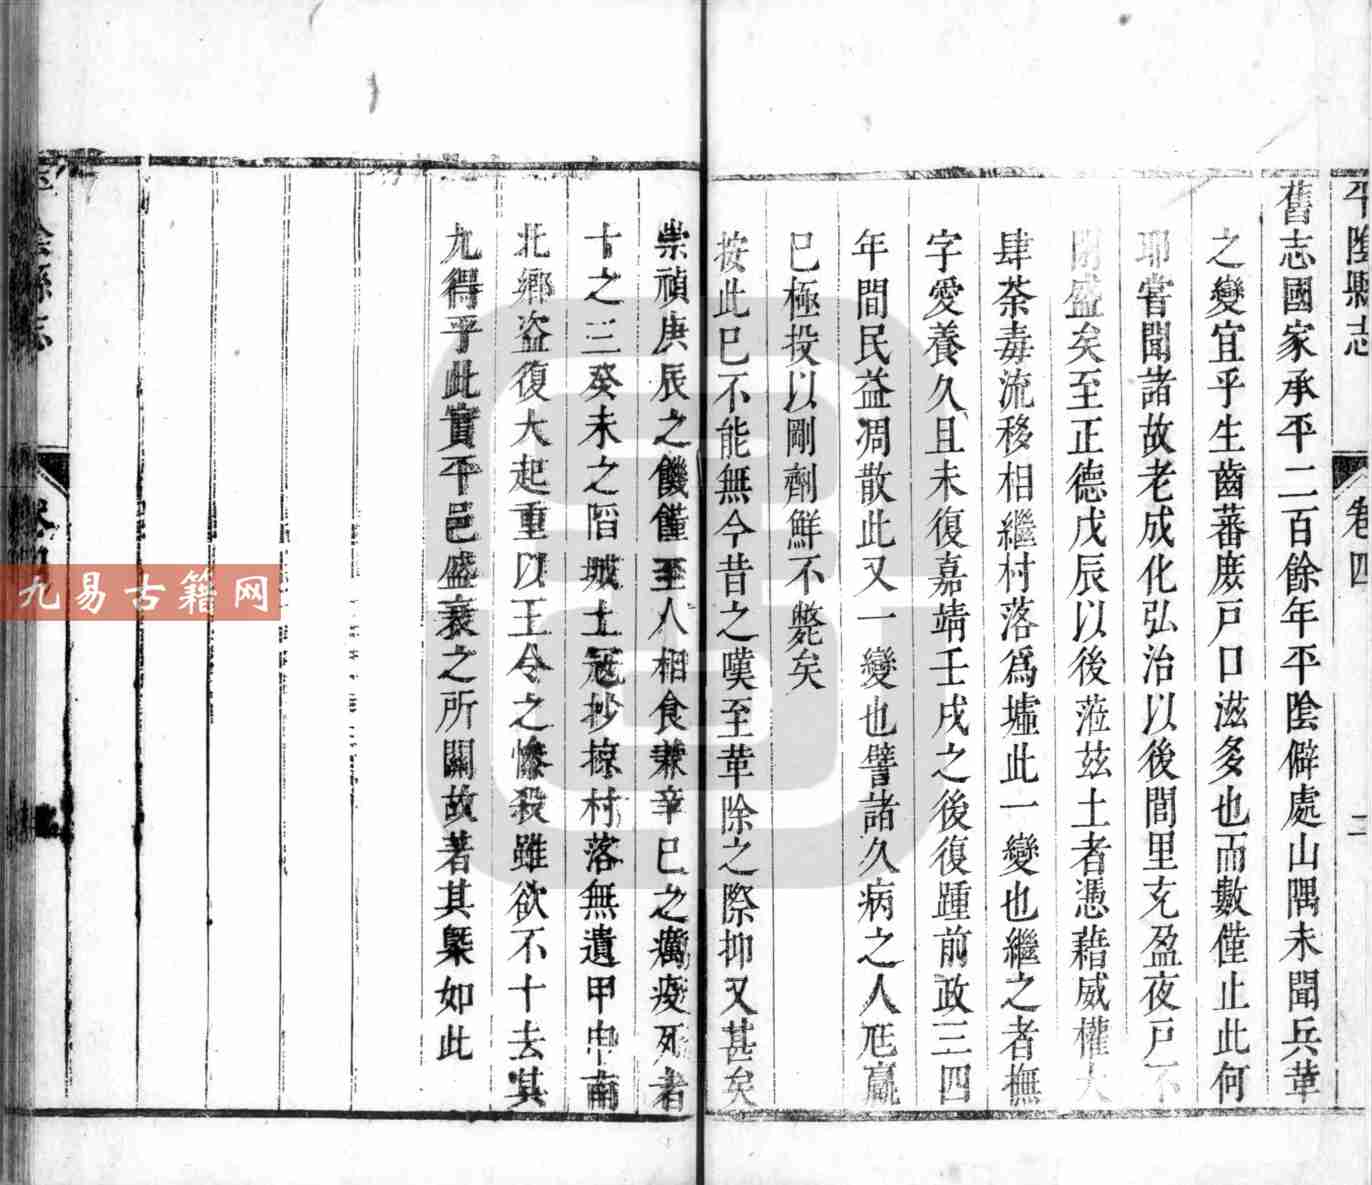 平陰縣志
卷四
二
舊志國家承平二百餘年平陰僻處山隅未聞兵革
之變宜乎生齒蕃庶戸口滋多也而數僅止此何
耶嘗聞諸故老成化弘治以後閭里充盈夜戸不
閉盛矣至正德戊辰以後蒞茲土者憑藉威權大
肆荼毒流移相繼村落爲墟此一變也繼之者撫
字愛養久且未復嘉靖壬戌之後復踵前政三四
年間民益凋散此又一變也譬諸久病之人尫羸
已極投以剛劑鮮不斃矣
按此已不能無今昔之嘆至革除之際抑又甚矣
崇禎庚辰之饑饉至人相食兼辛巳之癘疫死者
十之三癸未之陷城土冦抄掠村落無遺甲申南
北郷盗復大起重以王令之慘殺雖欲不十去其
九得乎此實平邑盛衰之所關故著其槩如此
九易古籍网